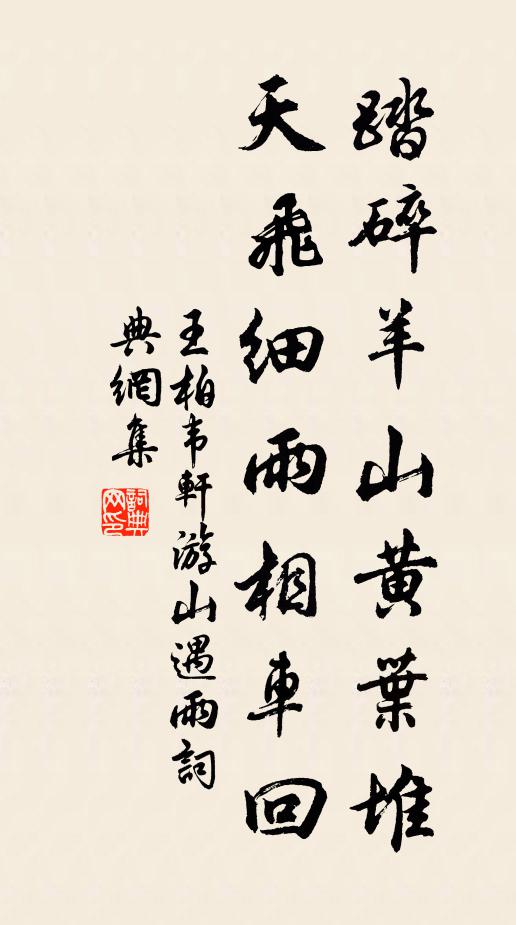 踏碎羊山黄葉堆
天飛細雨相車回
王柏韦軒游山遇雨詞
典網集
詞典网印